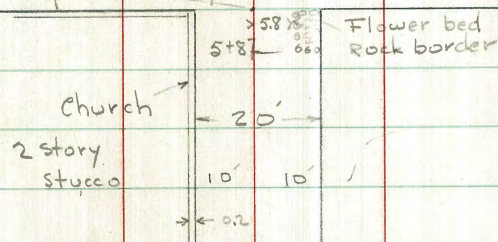 5.8
Flower bed
5+87
Rock border
Church
20'
2 story
stucco
10' 10'
0.2